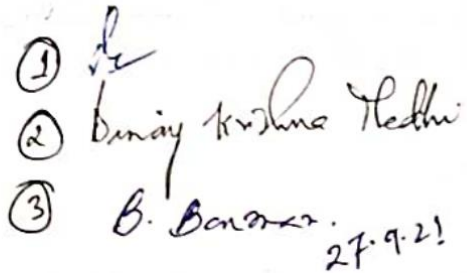 ①
② Binay Krishna Medhi
③ B. Barman.
27.9.21